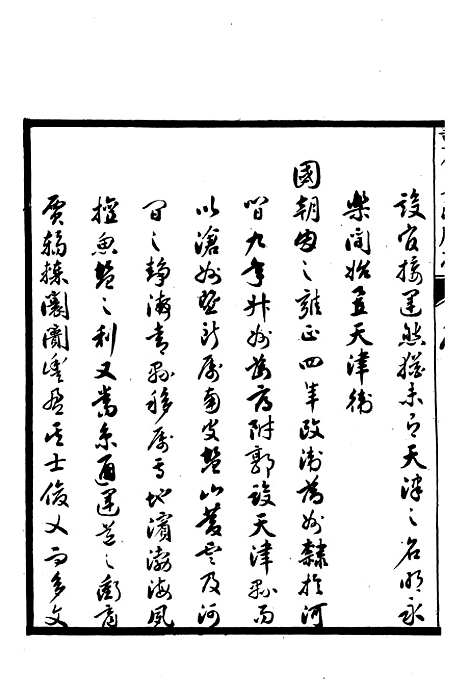 設官接運然猶未有天津之名明永
樂間始置天津衛
國朝因之雍正四年改衛為州隸於河
間九年升州為府附郭設天津縣而
以滄州暨所屬南皮鹽山慶雲及河
間之靜海青縣移屬焉地濱渤海風
擅魚鹽之利又當京通運道之衝商
賈輻輳闤闠士俊乂而多文